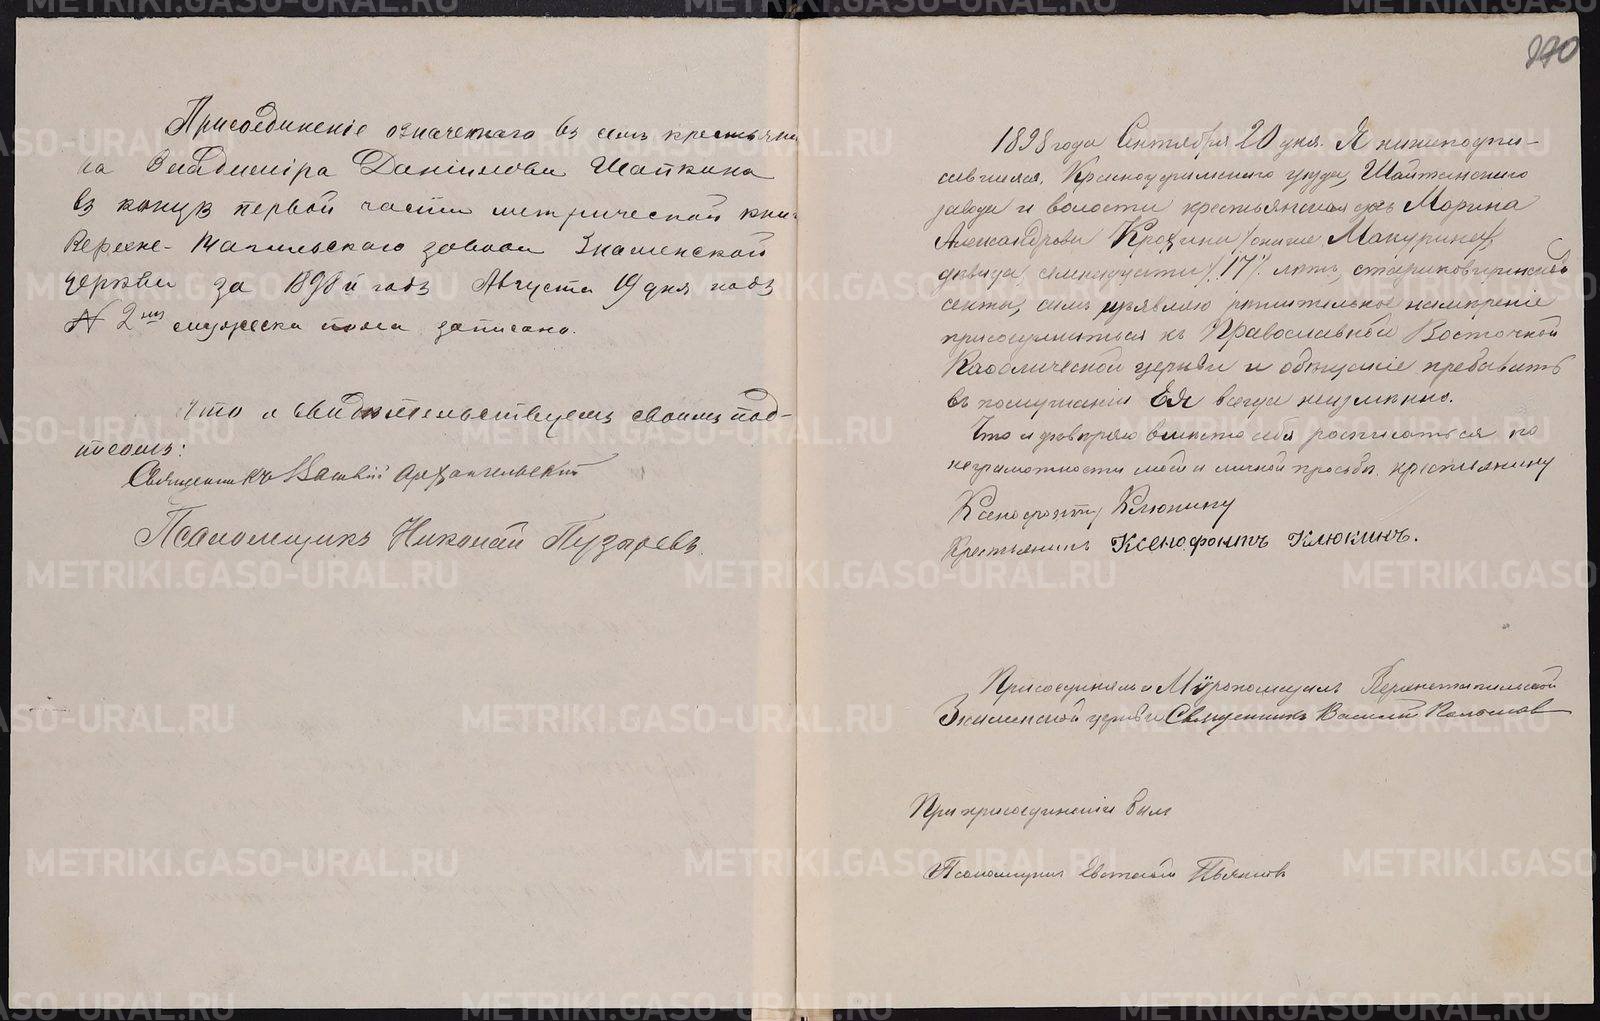 Присоединеніе означеннаго въ семъ крестьяни
на Владиміра Данилова Шапкина
въ концѣ первой части метрической кни-
Верхне-Тагильскаго завода Знаменской
церкви за 1898й годъ Августа 19 дня подъ
№ 2мъ мужеска пола записано.
Что и свидѣтельствуемъ своимъ под-
писомъ:
Священникъ Архангельскій
Псаломщикъ Николай Пузыревъ
270
1898 года Сентября 20 дня. Я нижеподпи-
савшаяся, Красноуфимскаго уѣзда, Шайтанскаго
завода и волости крестьянская дочь Марина
Александрова
дѣвица, семнадцати /17/ лѣтъ,
секты, симъ изъявляю рѣшительное намѣреніе
присоединиться къ Православной Восточной
Каѳолической церкви и обѣщаніе пребывать
въ послушаніи Ея всегда неизмѣнно.
Что и довѣряю вмѣсто себя росписаться по
неграмотности моей и личной просьбѣ крестьянину
Ксенофонту Клюкину
Крестьянинъ Ксенофонтъ Клюкинъ.
Присоединялъ и Мѵропомазалъ Верхнетагильской
Знаменской церкви Священникъ Василій
При присоединеніи былъ
Псаломщикъ
METRIKI.GASO-URAL.RU